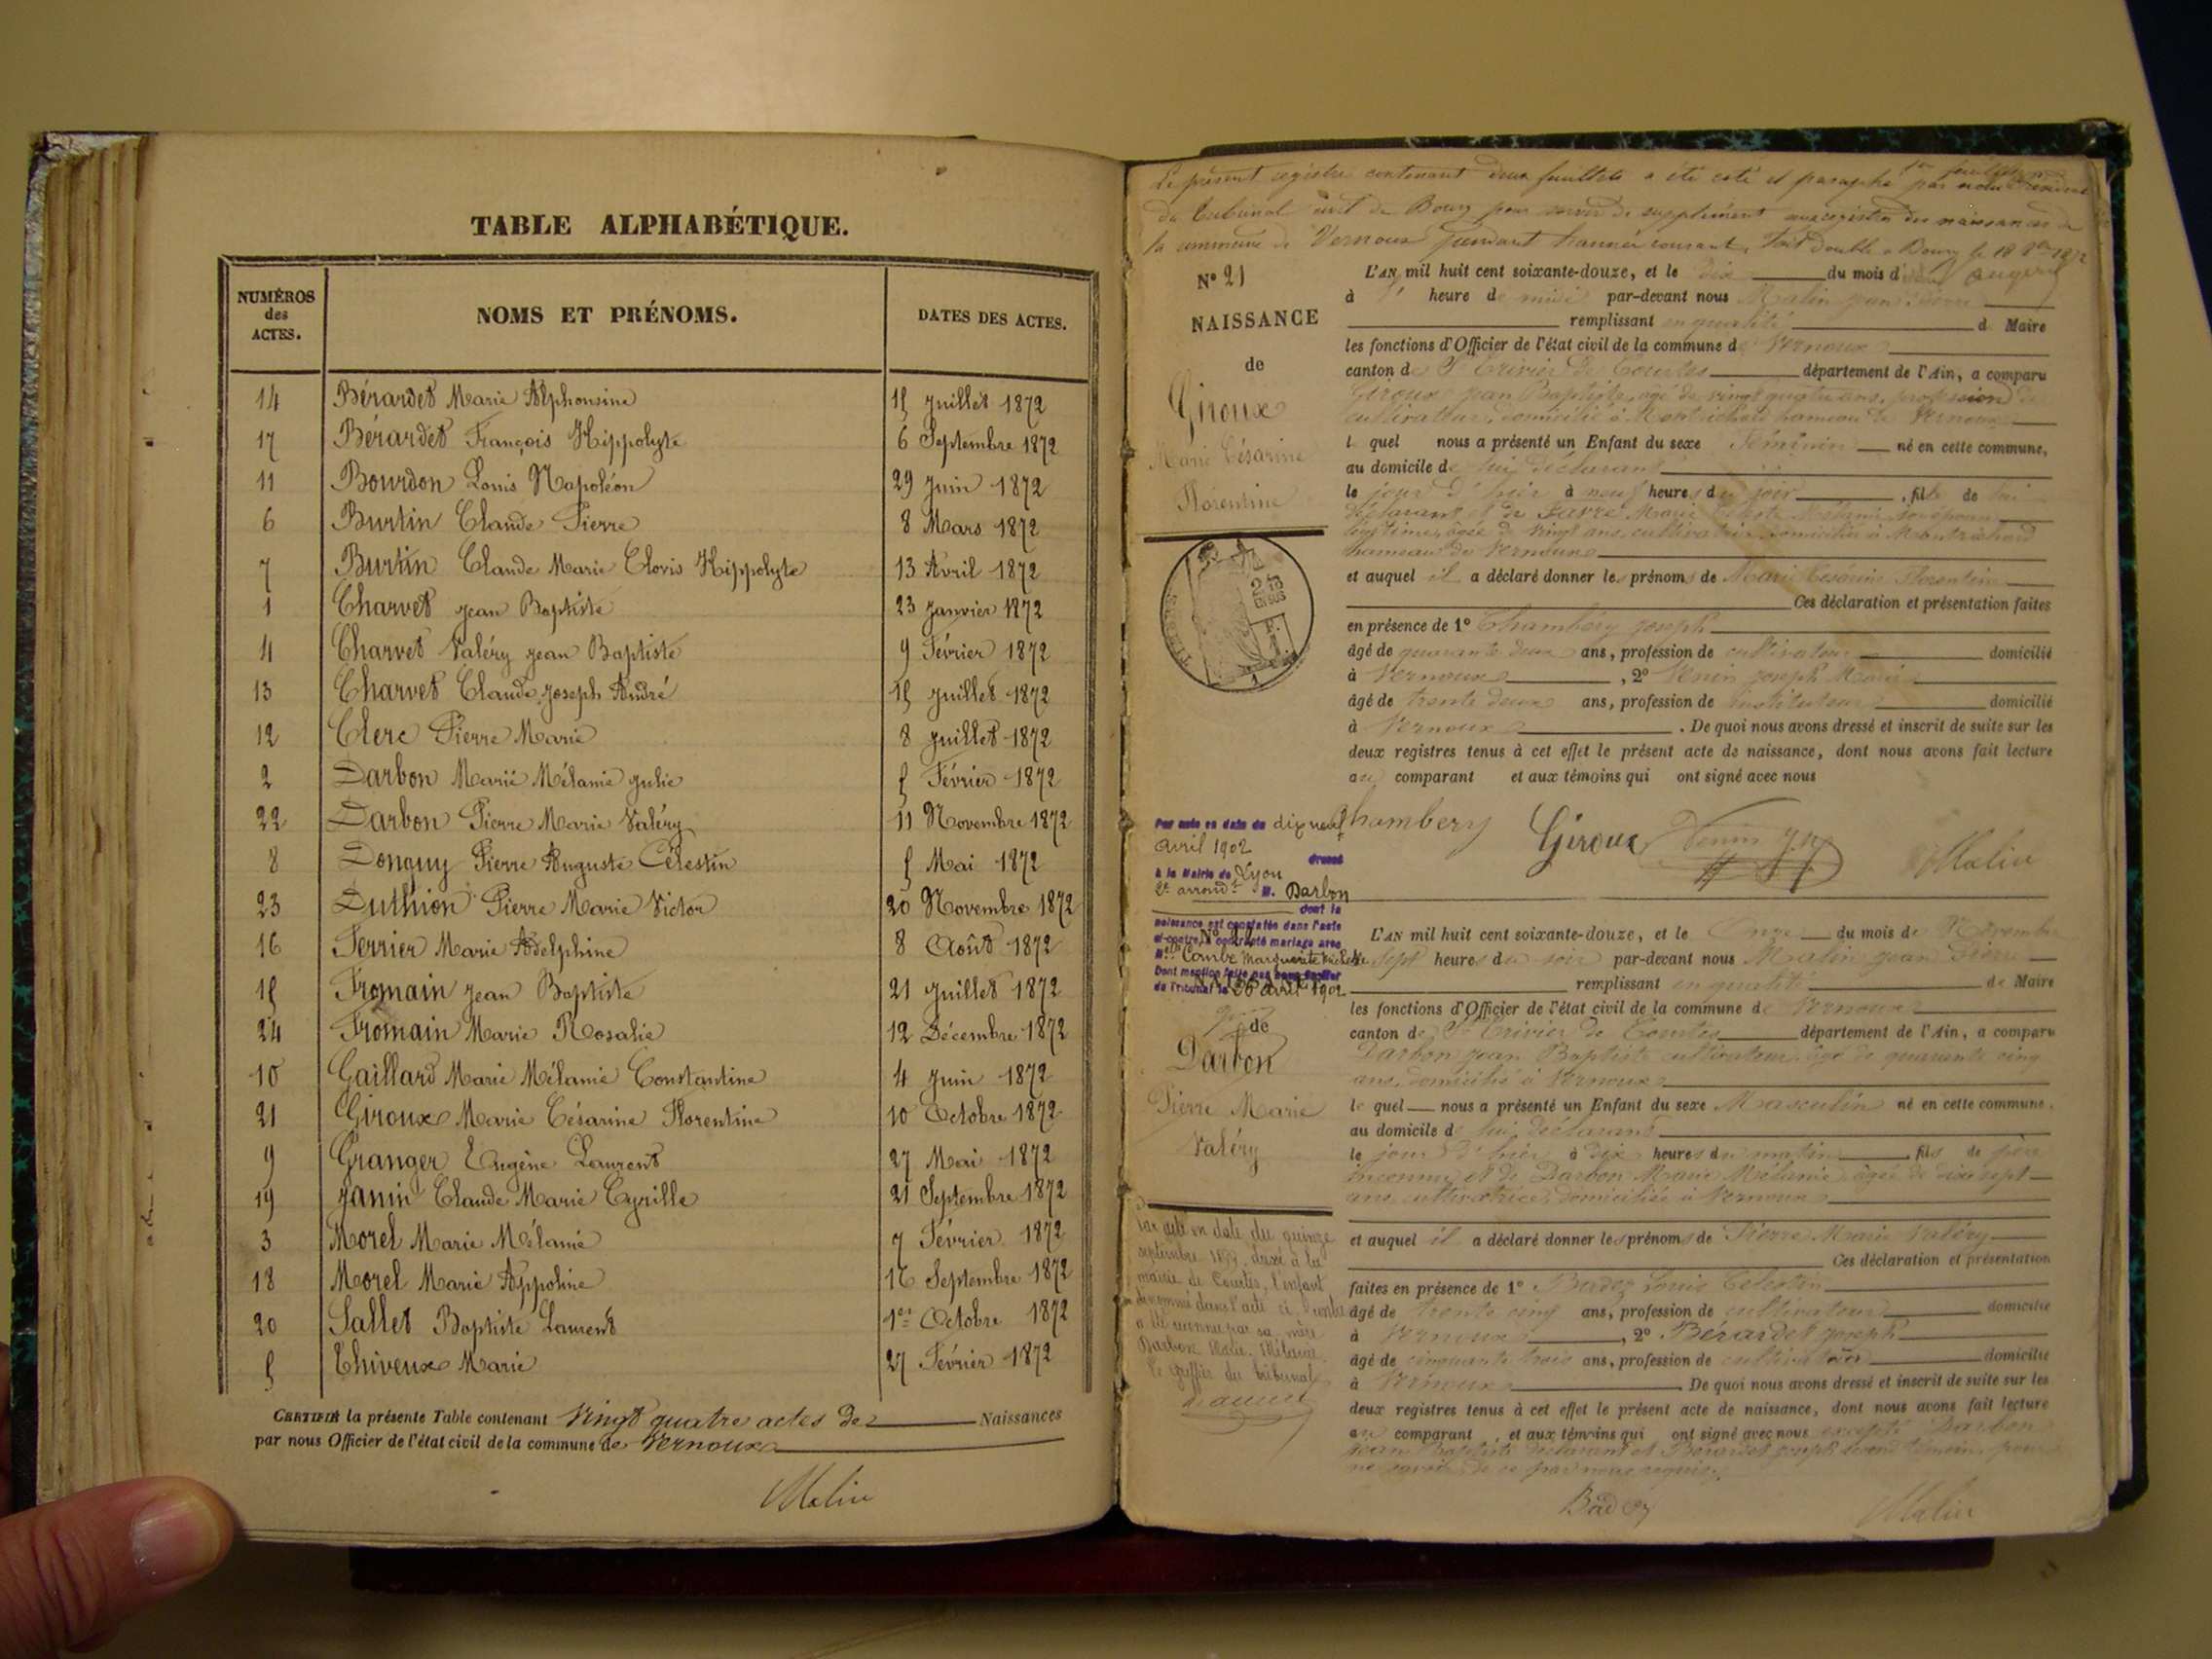 TABLE ALPHABÉTIQUE.
NUMÉROS des ACTES.
NOMS ET PRÉNOMS.
DATES DES ACTES.
14 Bérardet Marie Alphonsine 15 Juillet 1872
17 Bérardet François Hippolyte 6 Septembre 1872
11 Bourdon Louis Napoléon 29 Juin 1872
6 Burtin Claude Pierre 8 Mars 1872
7 Burtin Claude Marie Clovis Hippolyte 13 Avril 1872
1 Charvet Jean Baptiste 23 Janvier 1872
4 Charvet Valéry Jean Baptiste 9 Février 1872
13 Charvet Claude Joseph André 15 Juillet 1872
12 Clerc Pierre Marie 8 Juillet 1872
2 Darbon Marie Mélanie Julie 5 Février 1872
22 Darbon Pierre Marie Valéry 11 Novembre 1872
8 Donguy Pierre Auguste Célestin 5 Mai 1872
23 Duthion Pierre Marie Victor 20 Novembre 1872
16 Ferrier Marie Adelphine 8 Août 1872
15 Fromain Jean Baptiste 21 Juillet 1872
24 Fromain Marie Rosalie 12 Décembre 1872
10 Gaillard Marie Mélanie Constantine 4 Juin 1872
21 Giroux Marie Césarine Florentine 10 Octobre 1872
9 Granger Eugène Laurent 27 Mai 1872
19 Janin Claude Marie Cyrille 21 Septembre 1872
3 Morel Marie Mélanie 7 Février 1872
18 Morel Marie Appoline 16 Septembre 1872
20 Sallet Baptiste Laurent 1er Octobre 1872
5 Thiveux Marie 27 Février 1872
CERTIFIÉ la présente Table contenant Vingt quatre actes de Naissances
par nous Officier de l'état civil de la commune de Vernoux
Malin
Le présent registre contenant deux feuillets a été coté et paraphé par nous
du tribunal civil de Bourg pour servir de supplément aux registres des naissances de
la commune de Vernoux pendant l'année courante. Fait double à Bourg le 18
N° 21
NAISSANCE
de
Giroux
Marie Césarine
Florentine
L'AN mil huit cent soixante-douze, et le dix du mois d
à heure de midi par-devant nous Malin Jean Pierre
remplissant en qualité d Maire
les fonctions d'Officier de l'état civil de la commune de Vernoux
canton de St Trivier de Courtes département de l'Ain, a comparu
Giroux Jean Baptiste, âgé de vingt quatre ans, profession de
cultivateur, domicilié à Montrichard hameau de Vernoux
l quel nous a présenté un Enfant du sexe Féminin né en cette commune,
au domicile de lui déclarant
le jour d'hier à neuf heures du soir, fille de lui
déclarant et de Favre Marie
légitime, âgée de vingt ans, cultivatrice domiciliée à Montrichard
hameau de Vernoux
et auquel il a déclaré donner les prénoms de Marie Césarine Florentine
Ces déclaration et présentation faites
en présence de 1° Chambéry Joseph
âgé de quarante deux ans, profession de cultivateur domicilié
à Vernoux, 2° Venin Joseph Marie
âgé de trente deux ans, profession de instituteur domicilié
à Vernoux. De quoi nous avons dressé et inscrit de suite sur les
deux registres tenus à cet effet le présent acte de naissance, dont nous avons fait lecture
au comparant et aux témoins qui ont signé avec nous
Chambery Giroux Venin Malin
Par acte en date du dix neuf
avril 1902 dressé
à la Mairie de Lyon
2e arrondt M. Darbon
dont la
naissance est constatée dans l'acte
ci-contre, a contracté mariage avec
Mlle Combe Marguerite Michelle
Dont mention faite par nous Greffier
du Tribunal le 30 avril 1902
NAISSANCE
de
Darbon
Pierre Marie
Valéry
L'AN mil huit cent soixante-douze, et le Onze du mois de Novembre
sept heures du soir par-devant nous Malin Jean Pierre
remplissant en qualité de Maire
les fonctions d'Officier de l'état civil de la commune de Vernoux
canton de St Trivier de Courtes département de l'Ain, a comparu
Darbon Jean Baptiste cultivateur, âgé de quarante cinq
ans, domicilié à Vernoux
le quel nous a présenté un Enfant du sexe Masculin né en cette commune,
au domicile de lui déclarant
le jour d'hier à dix heures du matin, fils de père
inconnu et de Darbon Marie Mélanie, âgée de dix sept
ans, cultivatrice, domiciliée à Vernoux
et auquel il a déclaré donner les prénoms de Pierre Marie Valéry
Ces déclaration et présentation
faites en présence de 1° Louis Célestin
âgé de trente cinq ans, profession de cultivateur domicilié
à Vernoux, 2° Bérardet Joseph
âgé de cinquante trois ans, profession de cultivateur domicilié
à Vernoux. De quoi nous avons dressé et inscrit de suite sur les
deux registres tenus à cet effet le présent acte de naissance, dont nous avons fait lecture
au comparant et aux témoins qui ont signé avec nous excepté Darbon
Jean Baptiste déclarant et Bérardet Joseph second témoin pour
ne savoir de ce par nous requis.
Malin
Par acte en date du quinze
septembre dressé à la
mairie de Courtes, l'enfant
dénommé dans l'acte ci-contre
a été reconnu par sa mère
Darbon Marie Mélanie.
Le greffier du tribunal